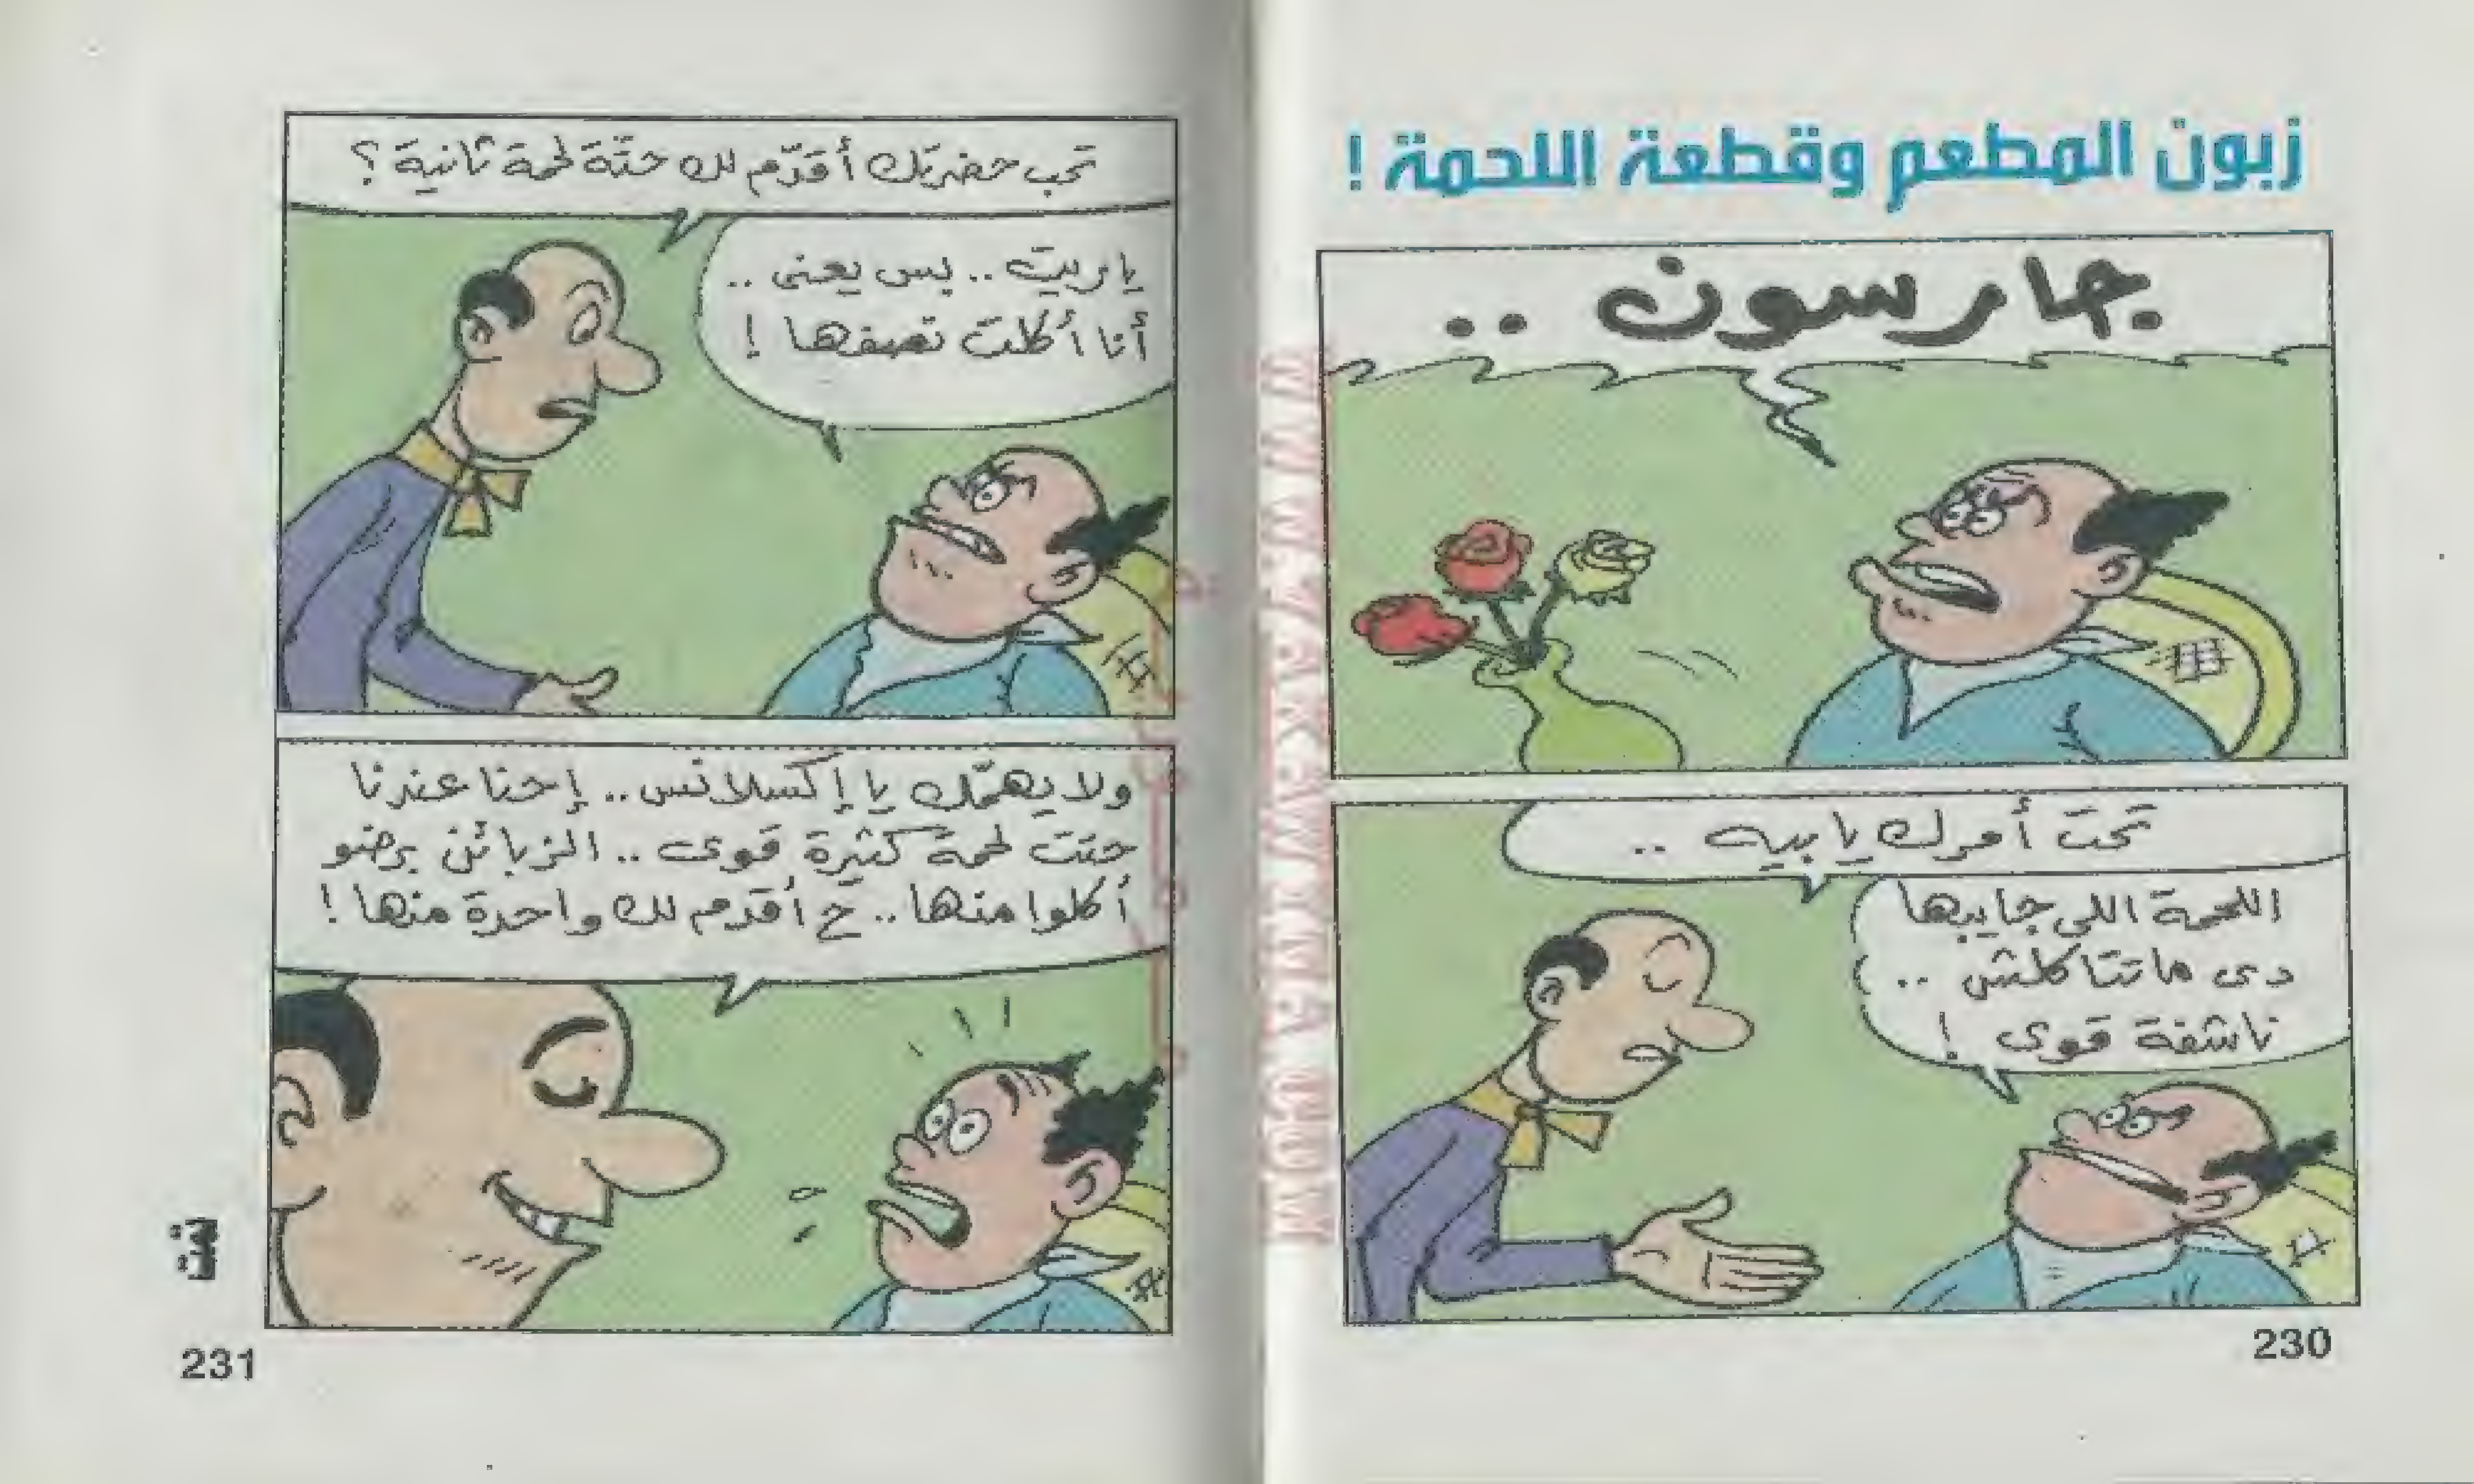 زبون المطعم وقطعة اللحمة !
جارسون ..
تحت أمرك يا بيه ..
اللحمة اللى جايبها
دى ماتتاكلش ..
ناشفة قوى !
230
تحب حضرتك أقدّم لك حتّة لحمة ثانية ؟
ياريت .. بس يعنى ..
أنا أكلت نصفها !
ولا يهمّك يا إكسلانس .. إحنا عندنا
حتت لحمة كثيرة قوى .. الزبائن برضو
أكلوا منها .. ح أقدم لك واحدة منها !
تمت
231